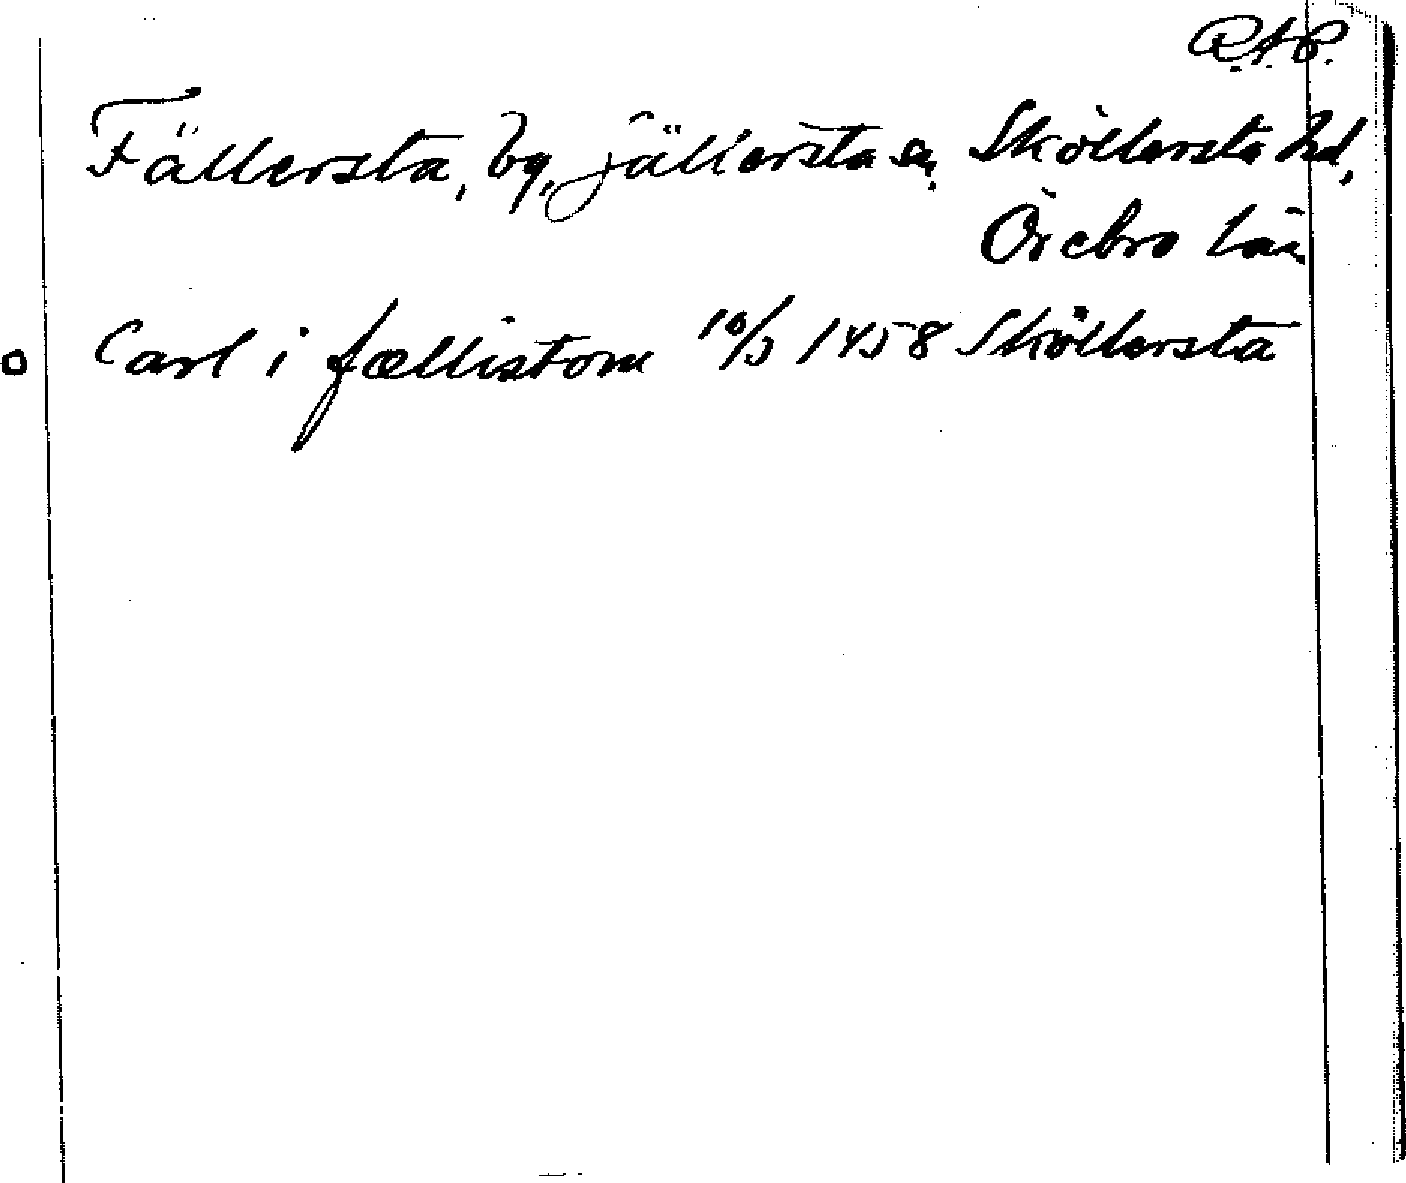 R.A.P.
Fällersta, by, Fällersta sn, Sköllersta hd,
Örebro län
Carl i fællistom 10/5 1458 Sköllersta